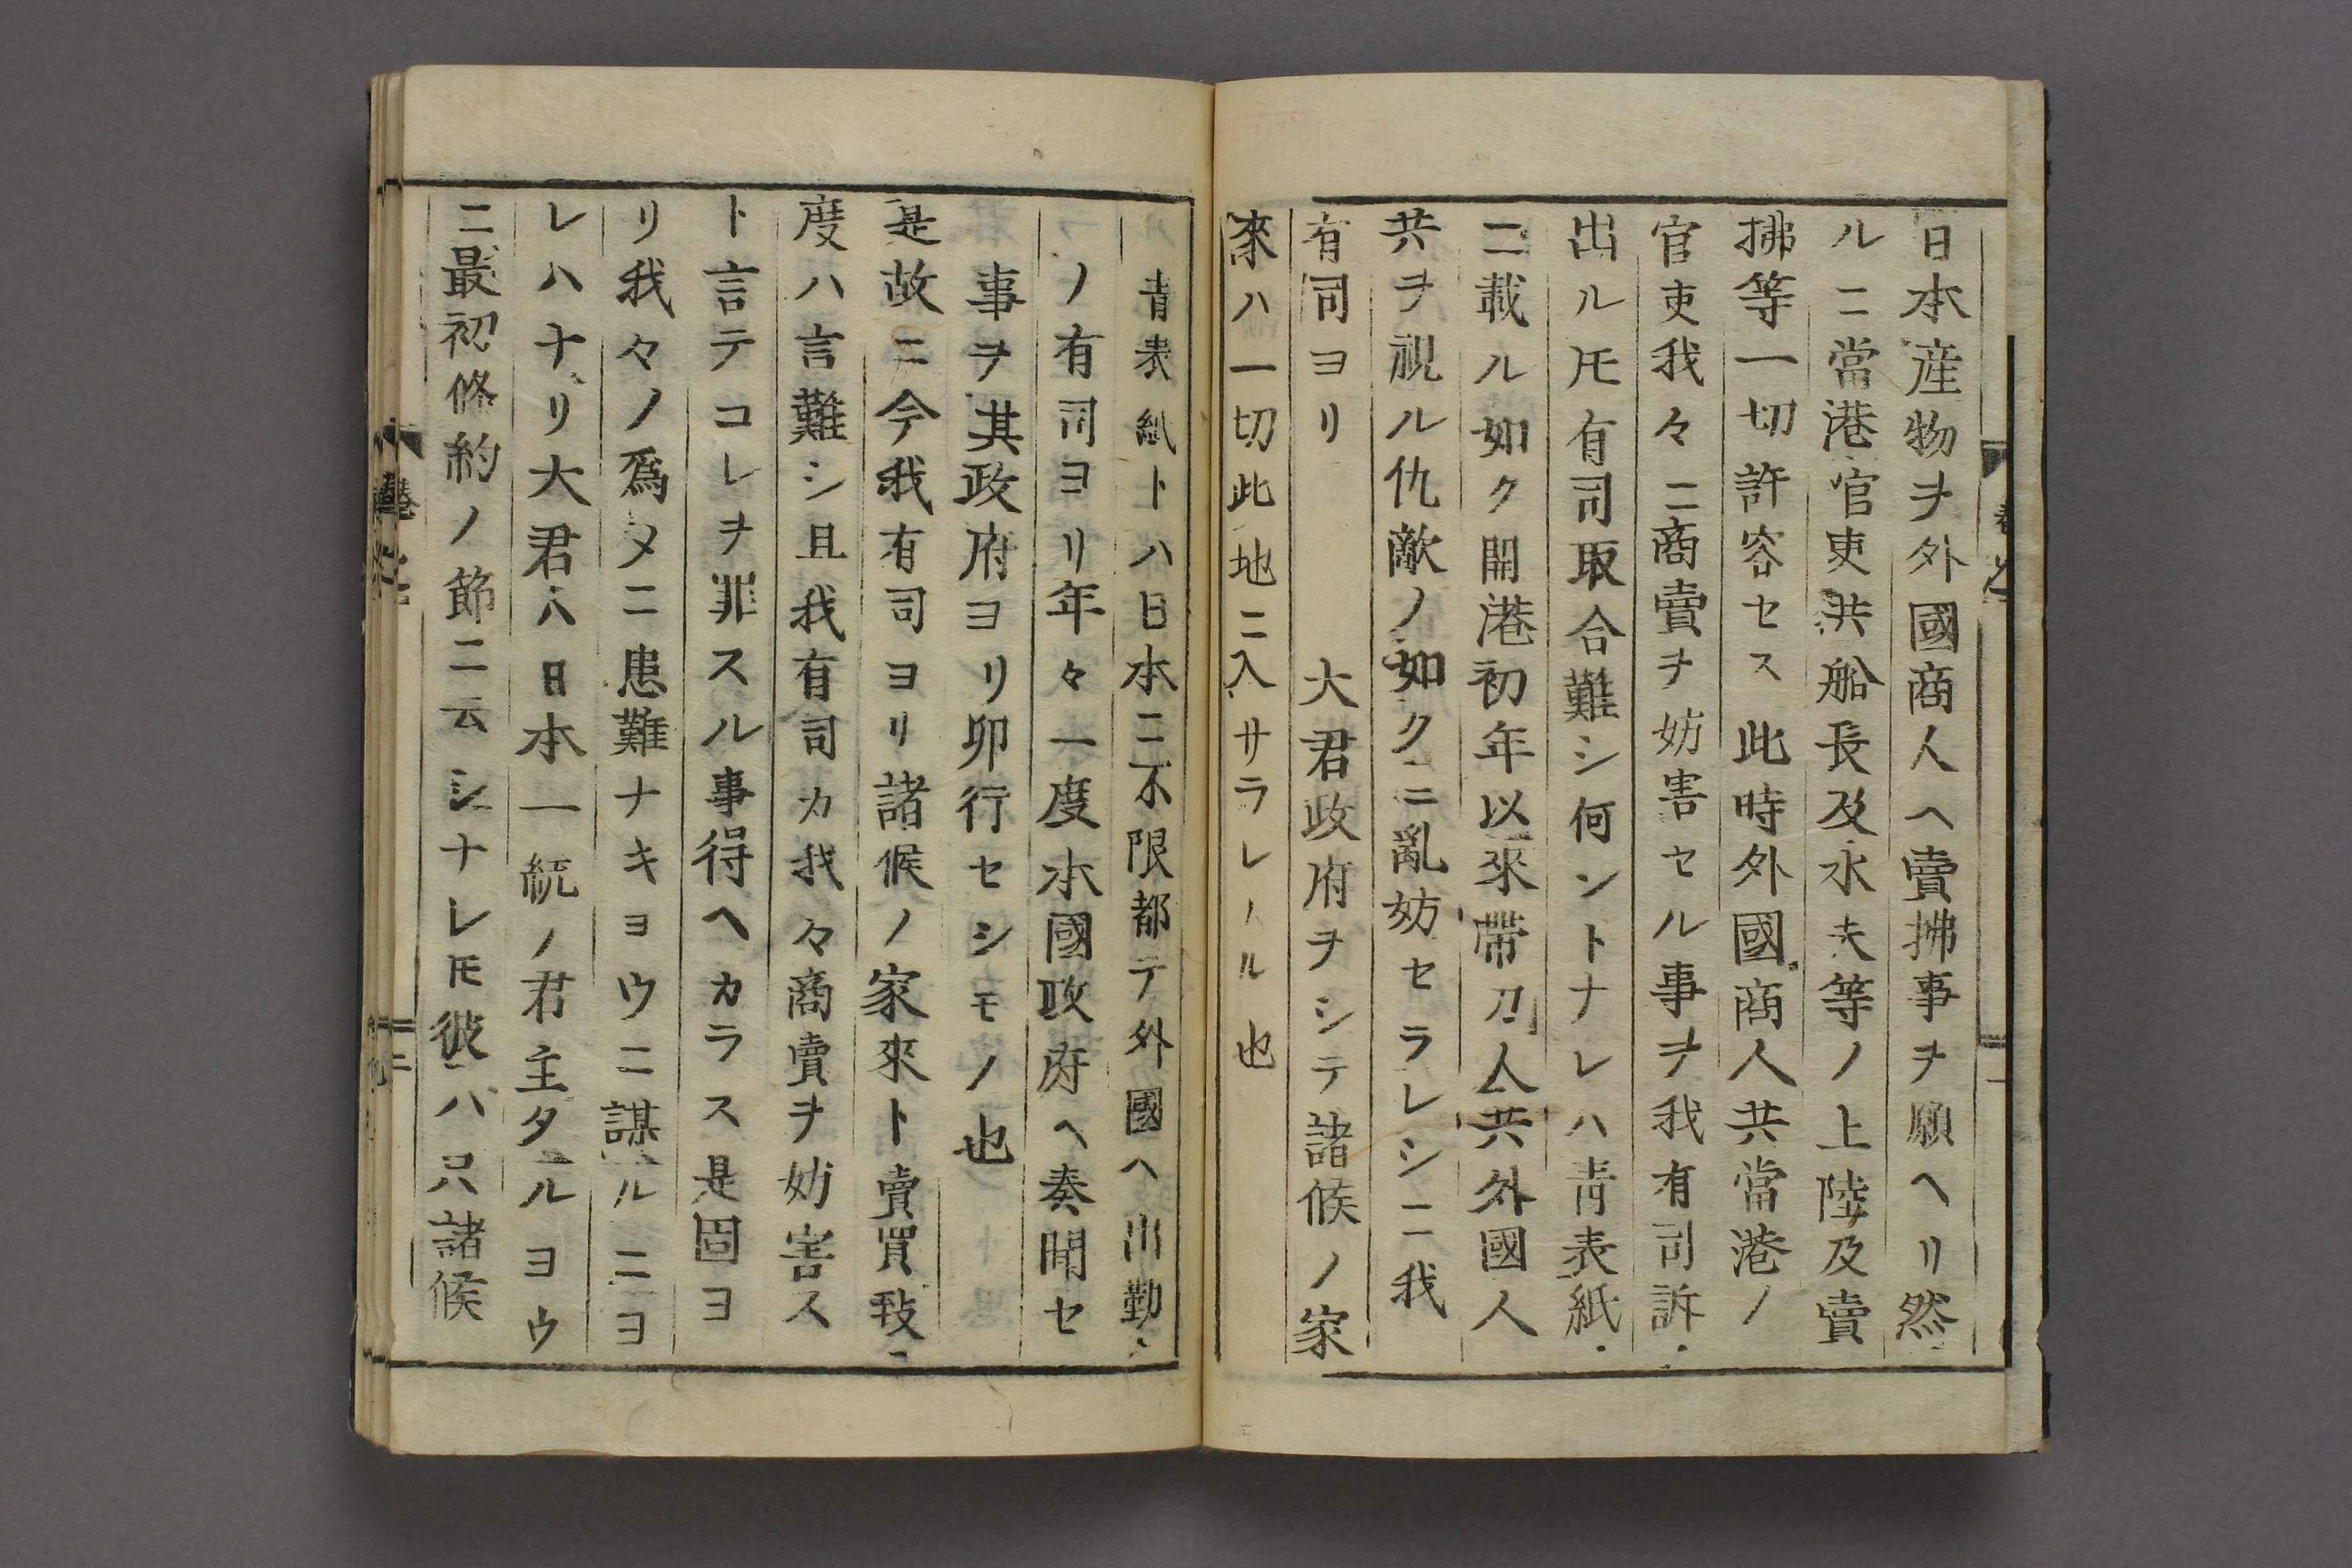 日本産物ヲ外國商人ヘ賣拂事ヲ願ヘリ然
ルニ當港官吏共船長及水夫等ノ上陸及賣
拂等一切許容セス此時外國商人共當港ノ
官吏我々ニ商賣ヲ妨害セル事ヲ我有司訴
出ルモ有司取合難シ何ントナレハ青表紙
ニ載ル如ク開港初年以來帶刀人共外國人
共ヲ視ル仇敵ノ如クニ亂妨セラレシニ我
有司ヨリ　大君政府ヲシテ諸候ノ家
來ハ一切此地ニ入サラレノル也
青表紙トハ日本ニ不限都テ外國ヘ出勤
ノ有司ヨリ年々一度本國政府ヘ奏聞セ
事ヲ其政府ヨリ卯行セシモノ也
是故ニ今我有司ヨリ諸候ノ家來ト賣買致
度ハ言難シ且我有司カ我々商賣ヲ妨害ス
ト言テコレヲ罪スル事得ヘカラス是固ヨ
リ我々ノ爲メニ患難ナキヨウニ謀ルニヨ
レハナリ大君ハ日本一統ノ君主タルヨウ
ニ最初條約ノ節ニ云シナレモ彼ハ只諸候